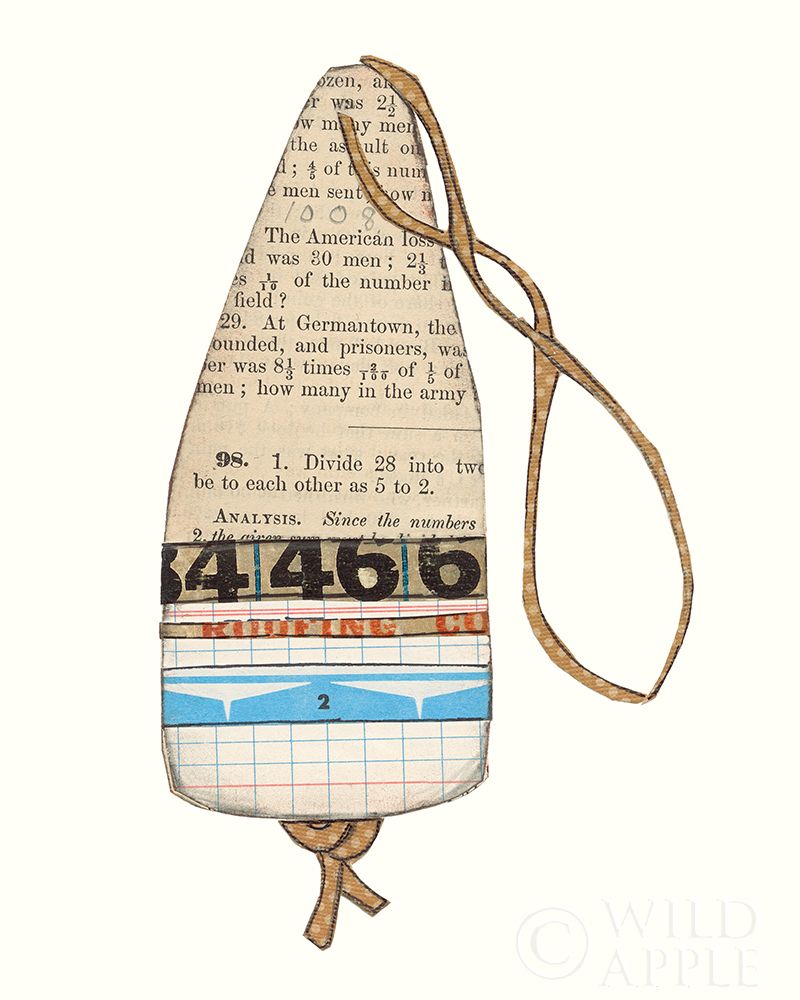 ozen, an
er was 2½
ow many men
the assault on
d ; ⅘ of this num
e men sent, how n
1008
The American loss
d was 30 men ; 2⅓
es 1/10 of the number i
field ?
29. At Germantown, the
ounded, and prisoners, was
er was 8⅓ times 2/100 of ⅕ of
men ; how many in the army
98. 1. Divide 28 into two
be to each other as 5 to 2.
ANALYSIS. Since the numbers
2, the given sum must be divided
34 446 6
ROOFING CO
2
© WILD
APPLE